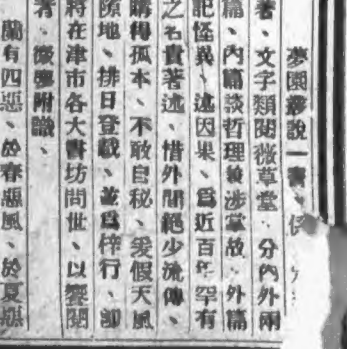 夢園叢說一書、係
著、文字類閱微草堂、分內外兩
篇、內篇談哲理兼涉掌故、外篇
記怪異、述因果、爲近百年罕有
之名貴著述、惜外間絕少流傳、
購得孤本、不敢自秘、爰假天風
隙地、排日登載、並爲梓行、卽
將在津市各大書坊問世、以饗閱
者、微塵附識、
蘭有四惡、於春惡風、於夏惡